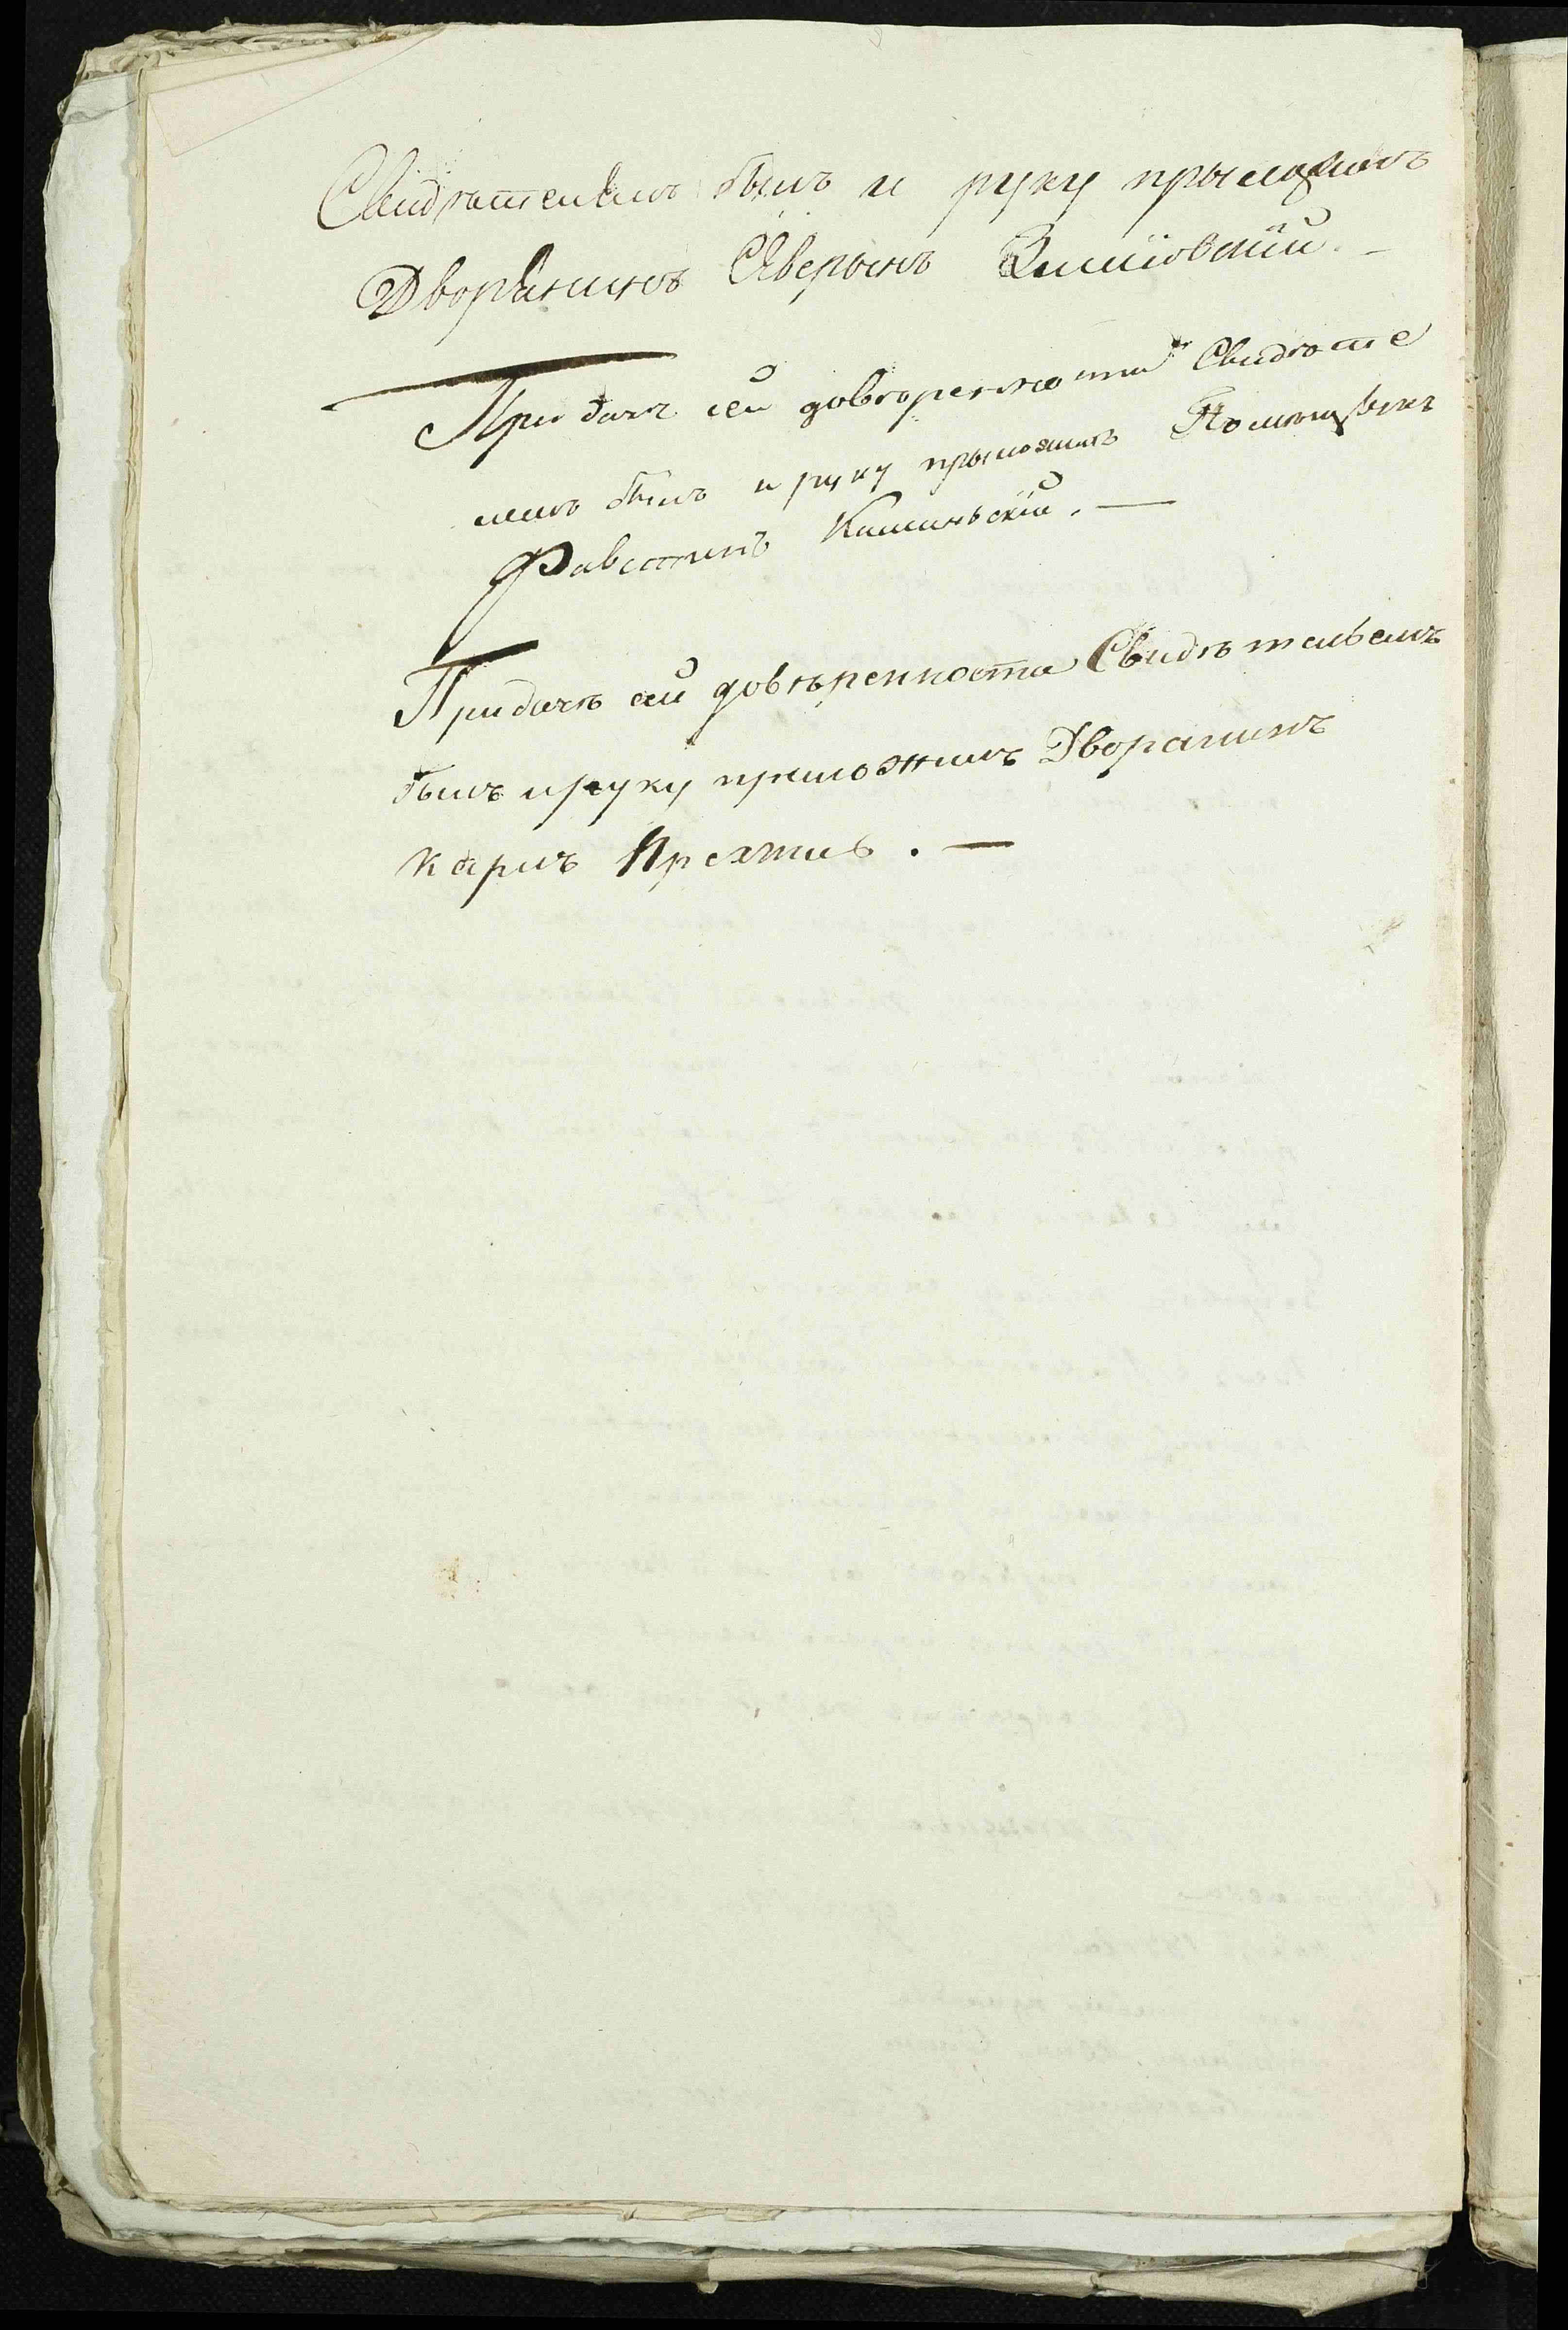 Свидѣтелемъ былъ и руку прыложилъ
Дворанинъ Северынъ
При дачѣ сей довѣренности Свидѣте
лемъ былъ и руку прыложилъ Помѣщыкъ
Фавстинъ Каминьскій. —
При дачѣ сей довѣренности Свидѣтельемъ
былъ и руку приложилъ Дворанинъ
Карлъ